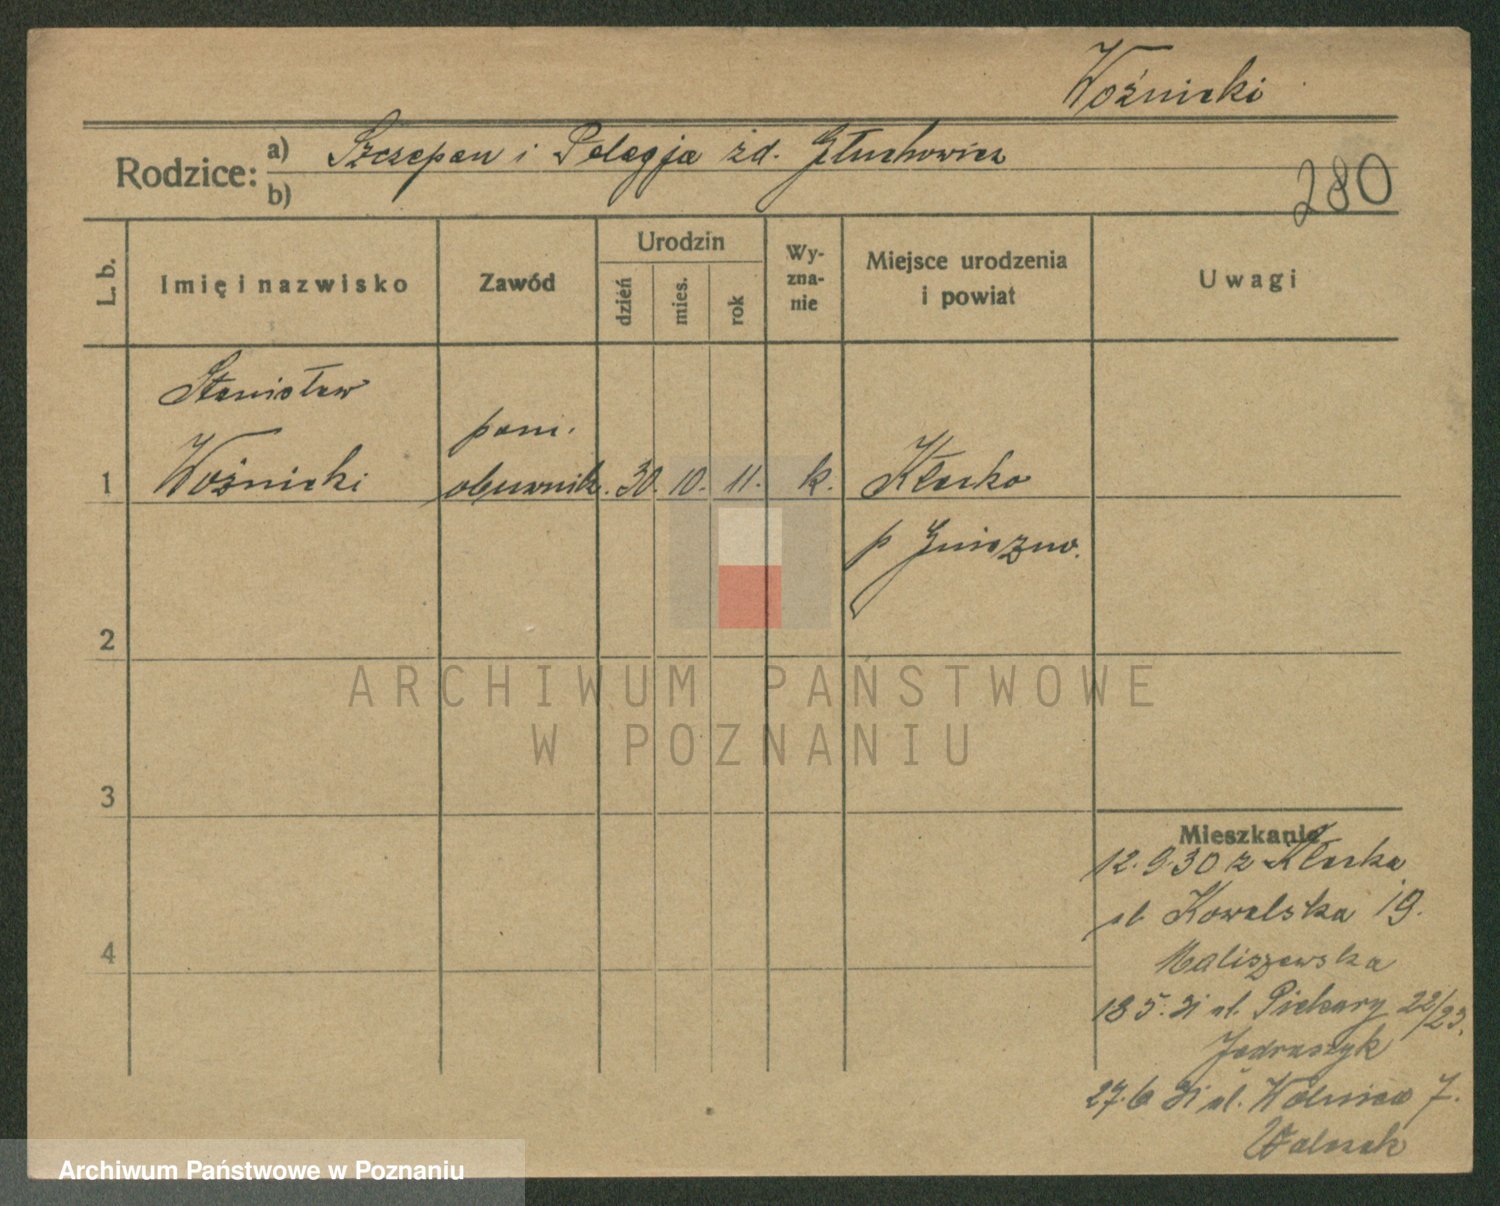 Woźnicki
Rodzice: a) Szczepan i Pelagja zd. Głuchowicz
b)
280
L. b.
Imię i nazwisko
Zawód
Urodzin
dzień
mies.
rok
Wy-
zna-
nie
Miejsce urodzenia
i powiat
Uwagi
Stanisław
pom.
1 Woźnicki obuwnik. 30. 10. 11. k. Kłecko
p Gniezno.
2
3
4
Mieszkanie
12.9.30 z Kłecka
ul Kowalska 19.
Maliszewska
18 5. 31 ul. Piekary 22/23.
Jędraszyk
27.6 31 ul. Wolnica 7.
Walczak
ARCHIWUM PAŃSTWOWE
W POZNANIU
Archiwum Państwowe w Poznaniu